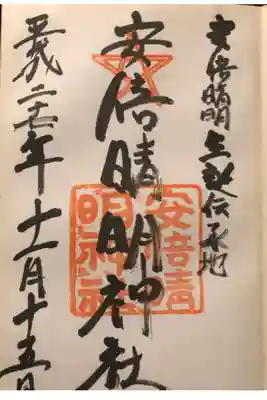 安倍晴明生誕伝承地
安倍晴明神社
安倍晴
明神社
平成二十年十一月十五日